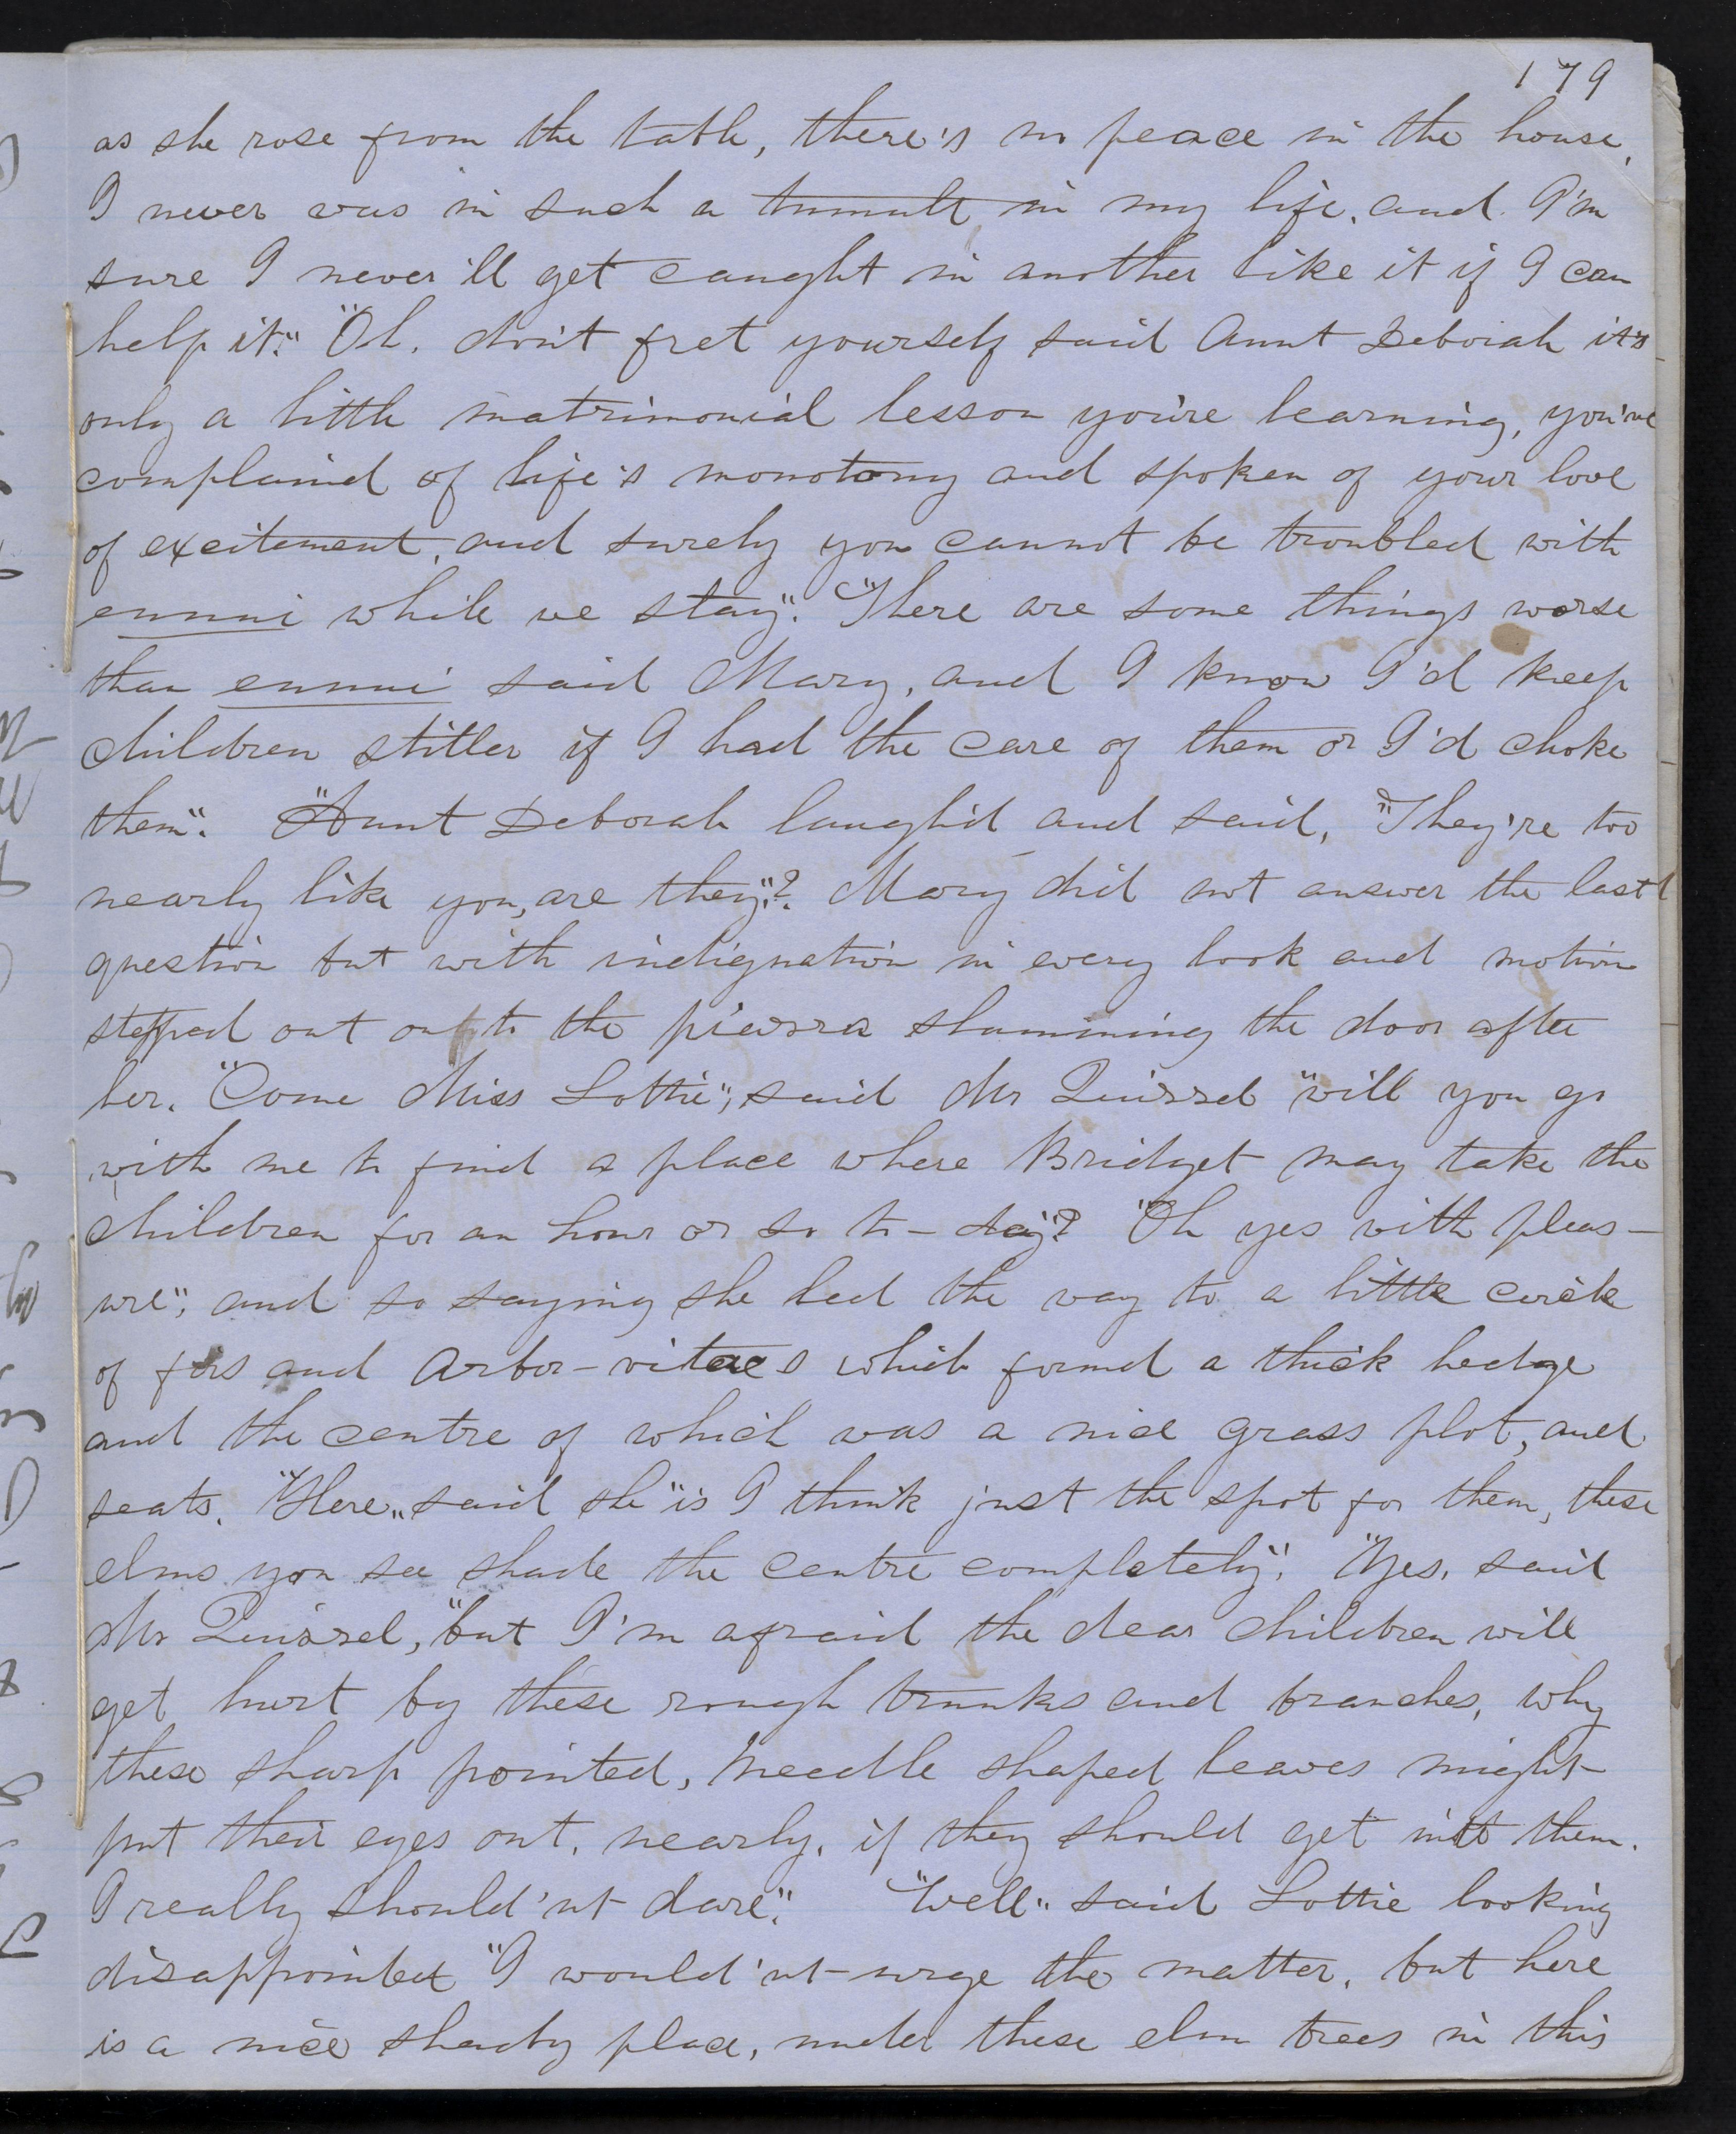 179
as she rose from the table, there's no peace in the house,
I never was in such a tumult in my life, and I'm
sure I never 'll get caught in another like it if I can
help it." "Oh, don't fret yourself said Aunt Deborah it's
only a little matrimonial lesson you're learning, you've
complained of life's monotony and spoken of your love
of excitement, and surely you cannot be troubled with
ennui while we stay". "There are some things worse
than ennui said Mary, and I know I'd keep
children stiller if I had the care of them or I'd choke
them". "Aunt Deborah laugh'd and said, "They're too
nearly like you, are they"? Mary did not answer the last
question but with indignation in every look and motion
stepped out on to the piazza slamming the door after
her. "Come Miss Lottie", said Mr Quissel "will you go
with me to find a place where Bridget may take the
children for an hour or so to-day"? "Oh yes with pleas-
ure", and so saying she led the way to a little circle
of firs and Arbor-vitaes which formd a thick hedge
and the centre of which was a nice grass plot, and
seats. "Here" said she "is I think just the spot for them, these
elms you see shade the centre completely". "Yes, said
Mr Quissel, "but I'm afraid the dear children will
get hurt by these rough trunks and branches, why
these sharp pointed, needle shaped leaves might
put their eyes out, nearly, if they should get into them.
I really should'nt dare". "Well" said Lottie looking
disappointed "I would'nt urge the matter, but here
is a nice shady place, under these elm trees in this